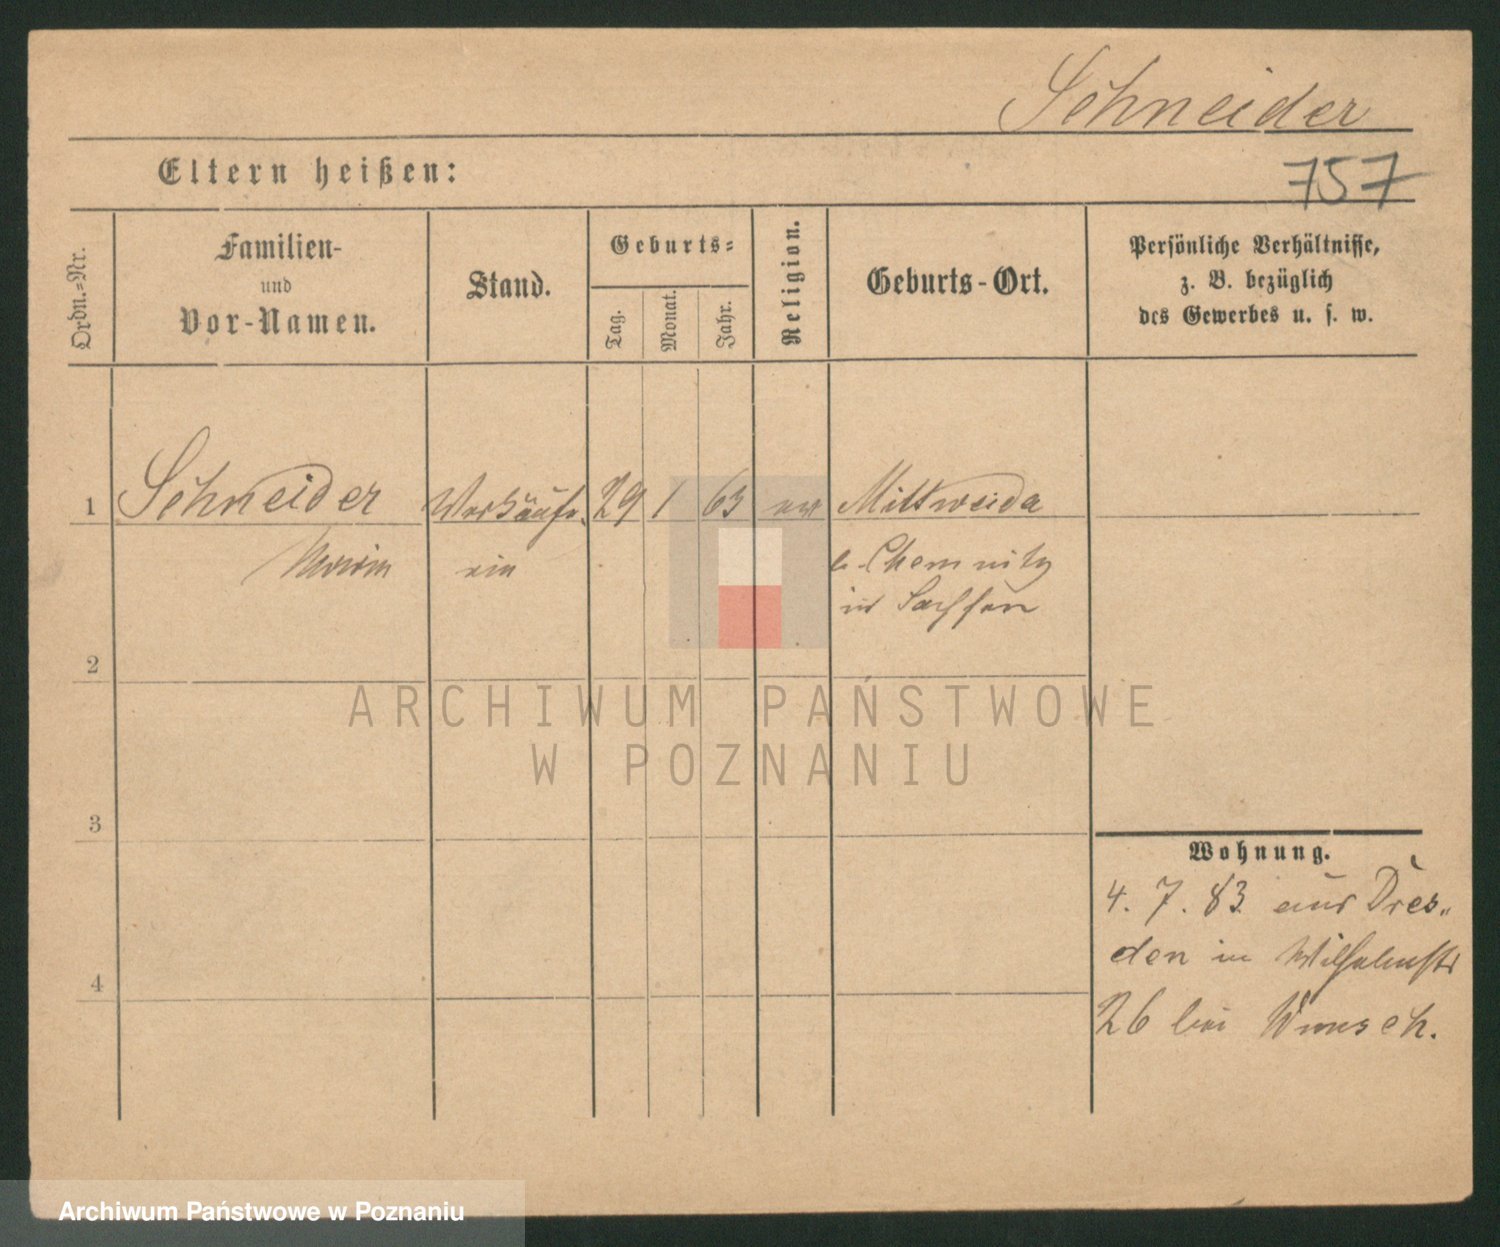 Schneider
Eltern heißen:
757
Ordn.=Nr.
Familien-
und
Vor-Namen.
Stand.
Geburts=
Tag.
Monat.
Jahr.
Religion.
Geburts-Ort.
Persönliche Verhältnisse,
z. B. bezüglich
des Gewerbes u. s. w.
1 Schneider Verkäufe- 29 1 63 ev Mittweida
ein b. Chemnitz
in Sachsen
2
ARCHIWUM PAŃSTWOWE
W POZNANIU
3
Wohnung.
4. 7. 83 aus Dres-
den in Wilhelmstr
26 bei Wunsch.
4
Archiwum Państwowe w Poznaniu